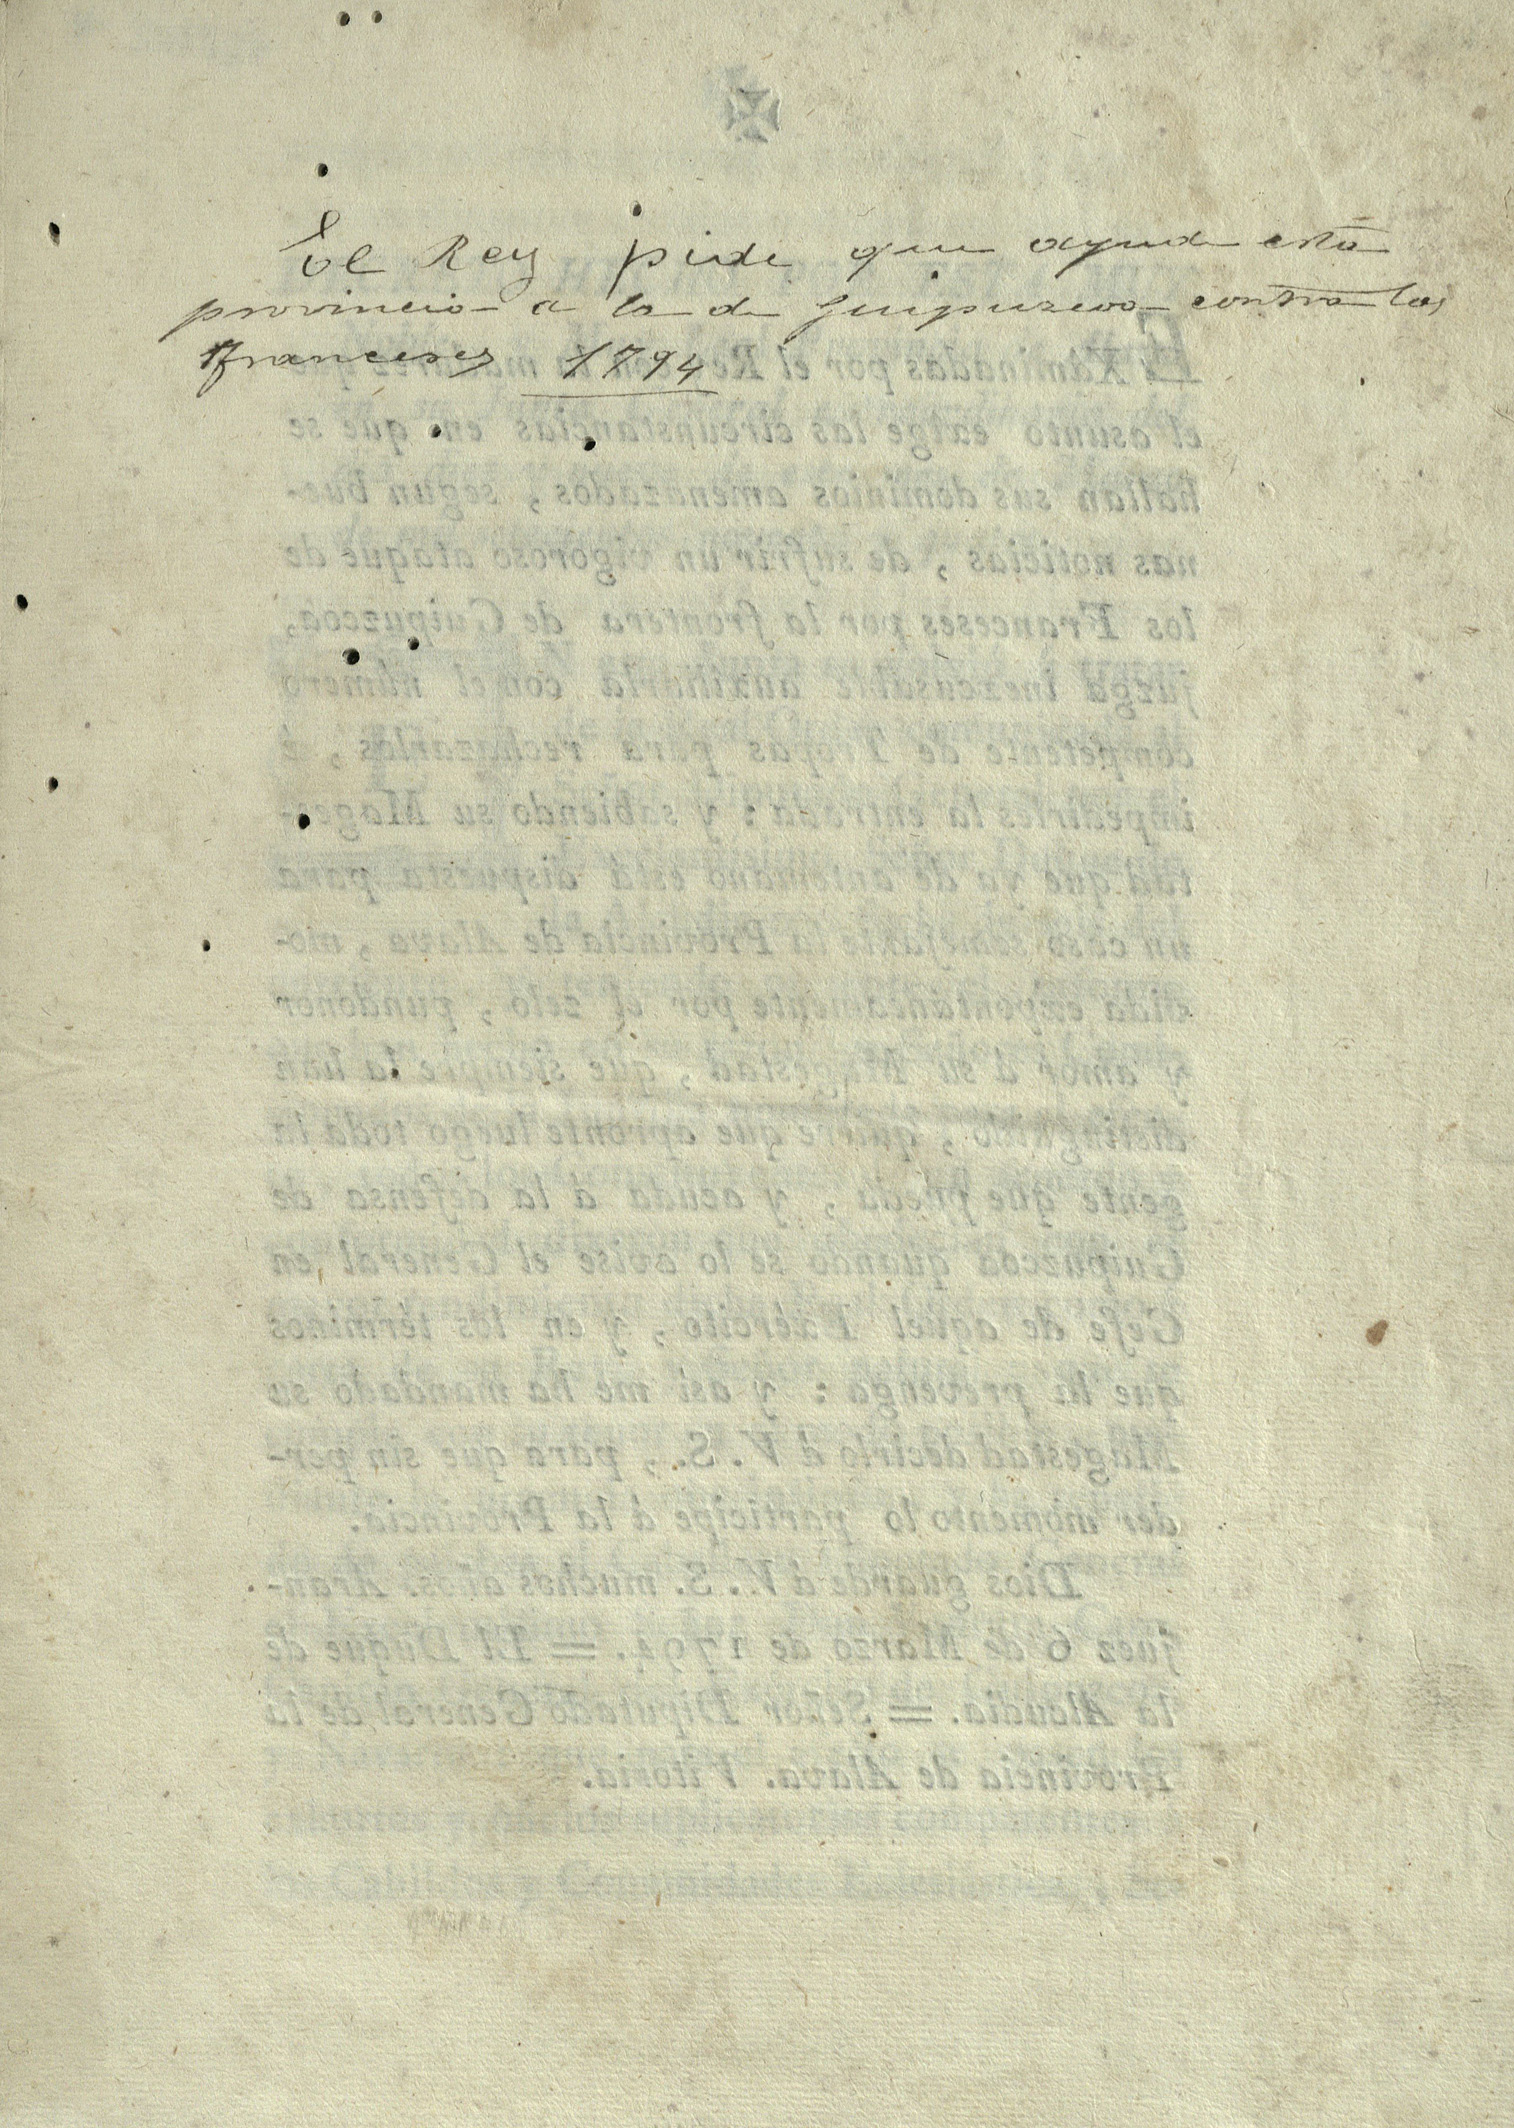 El Rey pide que ayude esta
provincia a la de Guipuzcoa contra los
franceses 1794
EXaminadas por el Rey con la madurez que
el asunto exîge las circunstancias en que se
hallan sus dominios amenazados, segun bue-
nas noticias, de sufrir un vigoroso ataque de
los Franceses por la frontera de Guipuzcoa,
juzga inexcusable auxîliarla con el número
competente de Tropas para rechazarlos, è
impedirles la entrada: y sabiendo su Mages-
tad que ya de antemano está dispuesta para
un caso semejante la Provincia de Alava, mo-
vida expontáneamente por el zelo, pundonor
y amor á su Magestad, que siempre la han
distinguido, quiere que apronte luego toda la
gente que pueda, y acuda á la defensa de
Guipuzcoa quando se lo avise el General en
Gefe de aquel Exército, y en los términos
que la prevenga: y asi me ha mandado su
Magestad decirlo á V. S., para que sin per-
der momento lo participe á la Provincia.
Dios guarde á V. S. muchos años. Aran-
juez 6 de Marzo de 1794. = El Duque de
la Alcudia. = Señor Diputado General de la
Provincia de Alava. Vitoria.